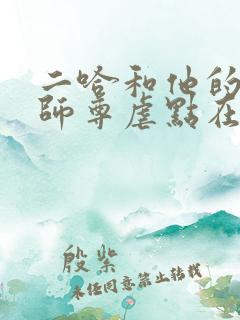 二哈和他的
師尊虐點在
殷紫
未經同意禁止轉載